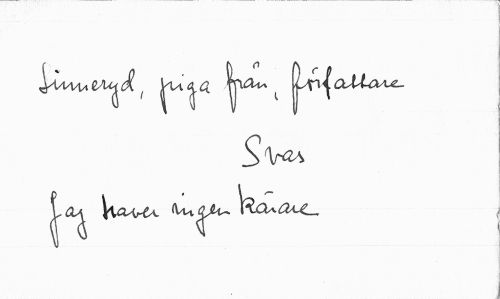 Linneryd, piga från, författare
Svas
Jag haver ingen kärare